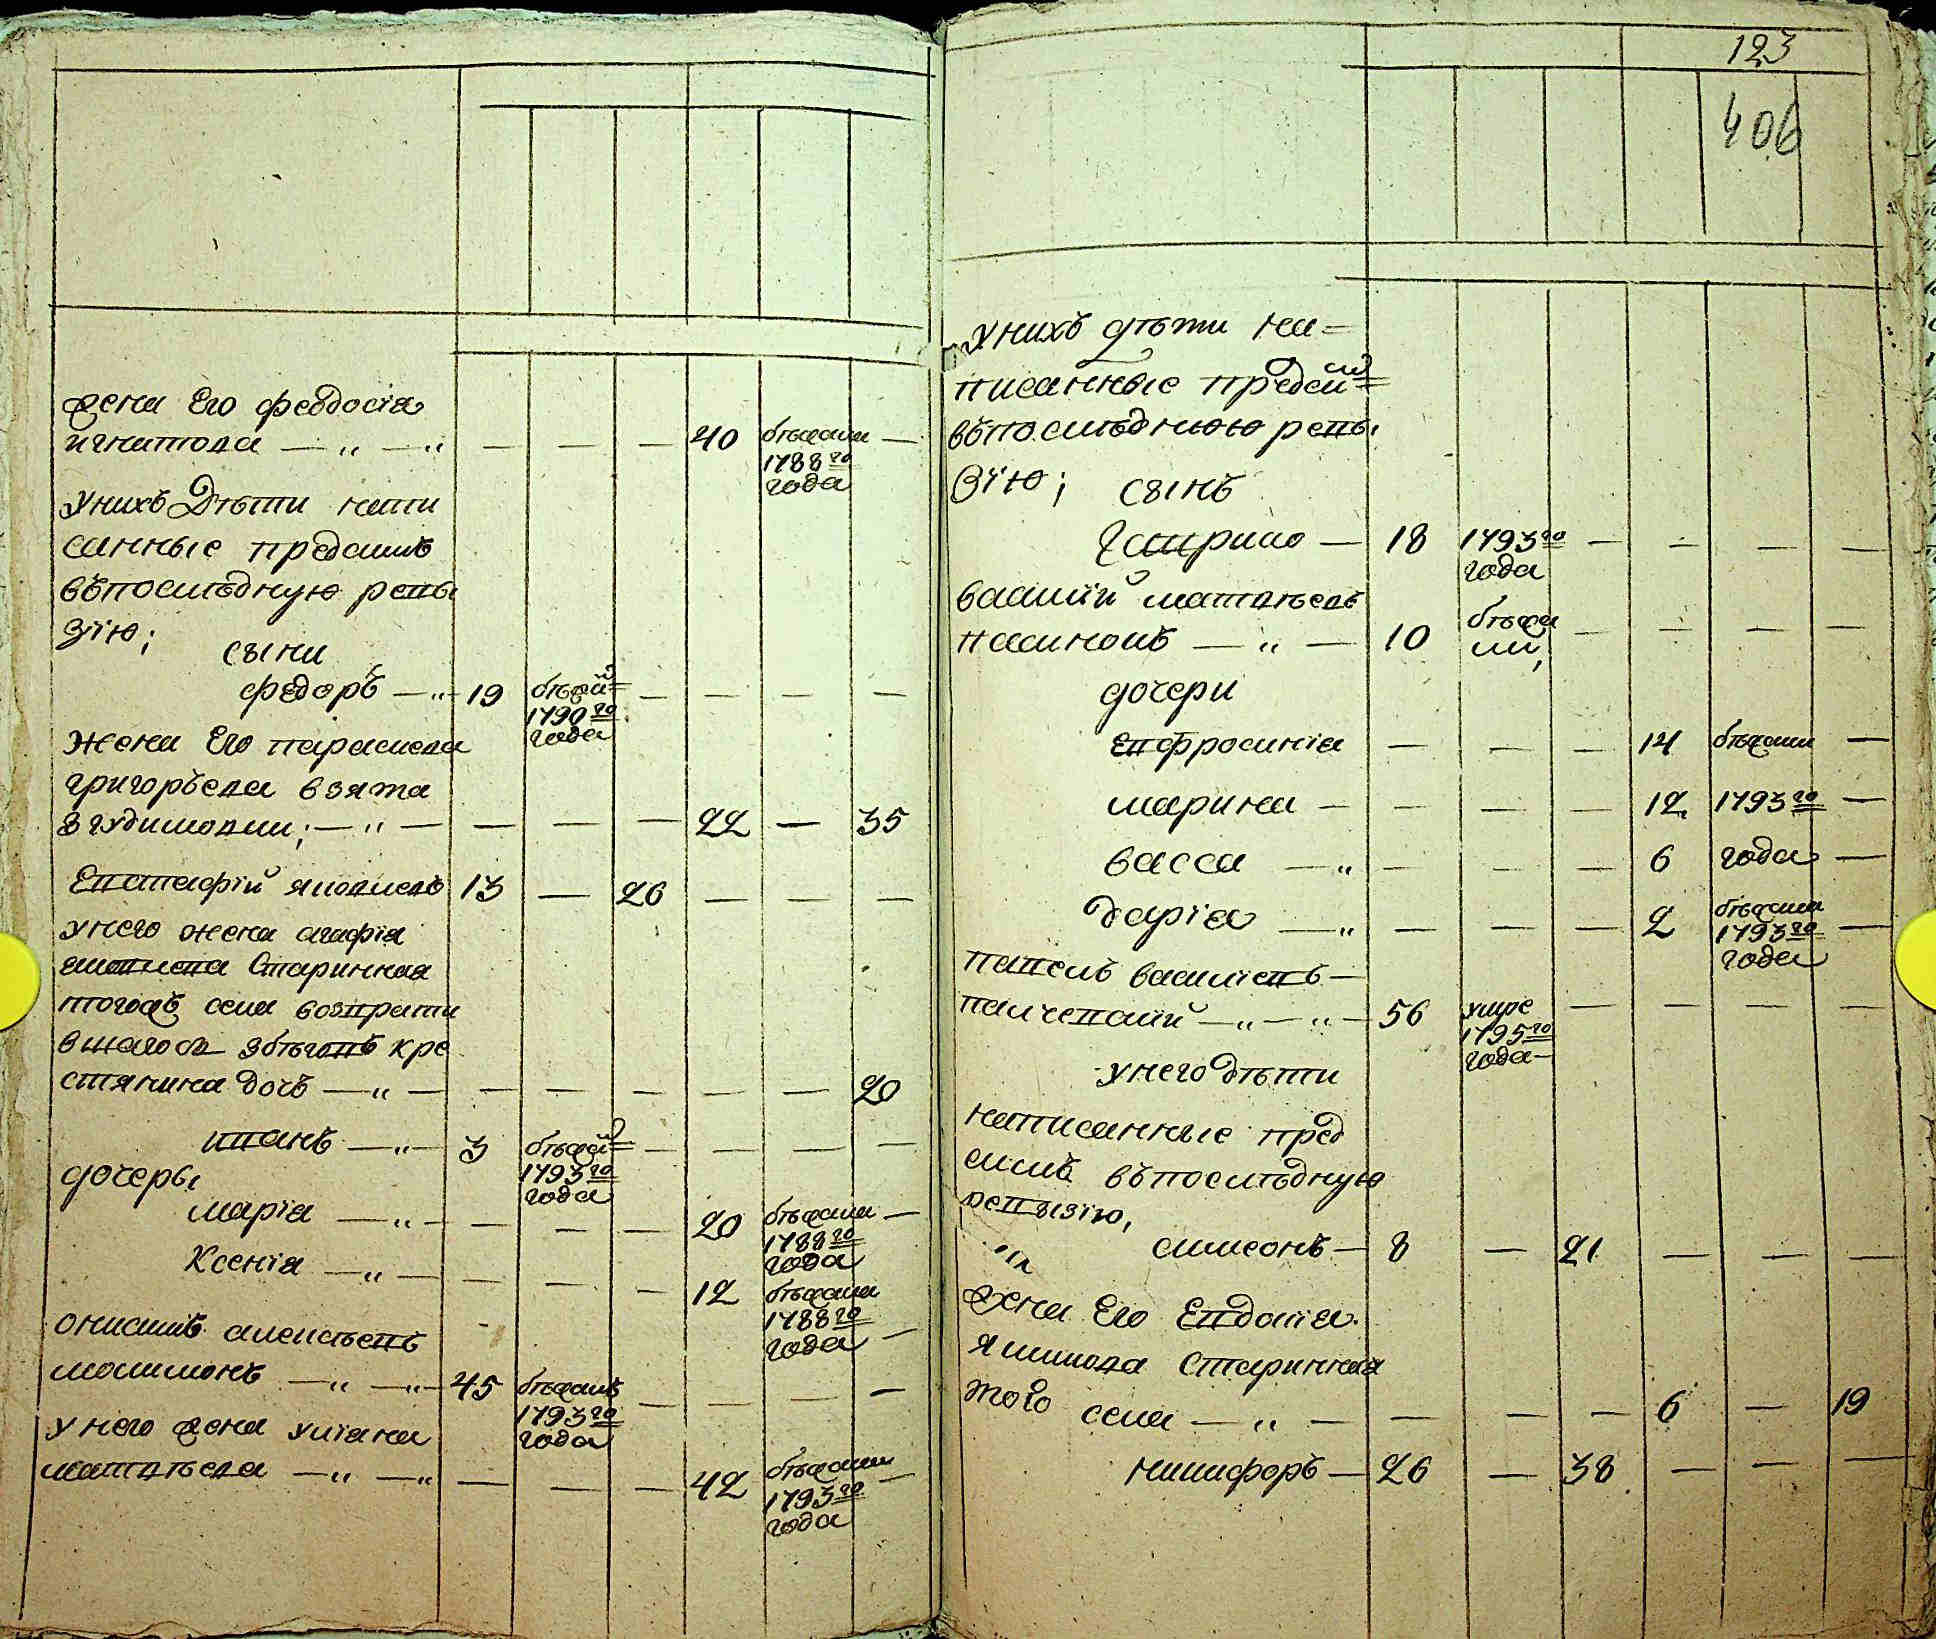 жена Его феодосїа
игнатова — „ — „ — — — 40 бѣжали —
1788 го
года
унихъ Дѣти напи
санные предсимъ
въпослѣдную ревы
зїю;
сыни
федоръ — „ 19 бѣжал — — — —
1790 го
года
жена Его параскева
григорьева взята
— „ — — — — 22 — 35
Евстафїй яковлевъ 13 — 26 — — —
унего жена агафїа
Старинная
тогожъ села возврати
вшагось збѣговъ кре
стянина дочъ — „ — — — — — — 20
иванъ — „ — 3 бѣжал — — — —
1793 го
года
дочеры
марїа — „ — — — — 20 бѣжали —
1788 го
года
Ксенїа — „ — — — — 12 бѣжали
1788 го
года —
онисимъ алексѣевъ
— „ — „ 45 бѣжалъ — — — —
1793 го
года
у него жена улїана
матвѣева — „ — „ — — — 42 бѣжали —
1793 го
года
123
406
унихъ дѣти на=
писанные предсим
въпослѣднюю ревы
зїю; сынъ
гаврило — 18 1793 го — — — —
года
василїй матвѣевъ
— „ — 10 бѣжа — — — —
ли,
дочери
Евфросинїа — — — 14 бѣжали —
марина — — — — 12 1793 го —
васса — „ — — — 6 года —
дарїа — „ — — — 2 бѣжали —
1793 го
года
павелъ василїевъ —
— „ — „ — 56 умре — — — —
1795 го
года —
унего дѣти
написанные пред
симъ въпослѣдную
ревызїю,
симеонъ — 8 — 21 — — —
жена Его Евдокїа
Старинная
того села — „ — — — — 6 — 19
никифоръ — 26 — 38 — — —